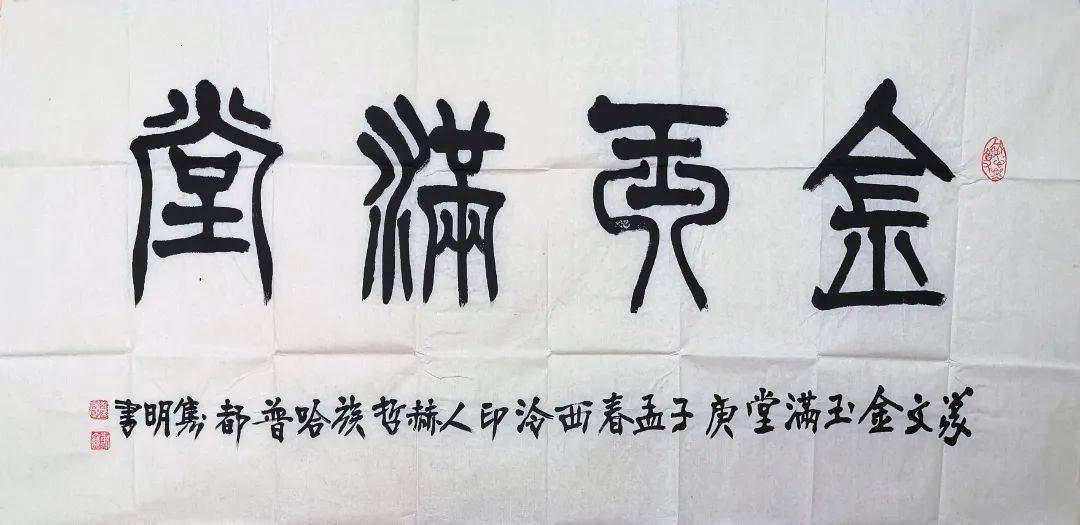 金玉滿堂
篆文金玉满堂庚子孟春西泠印人赫哲族哈普都隽明書